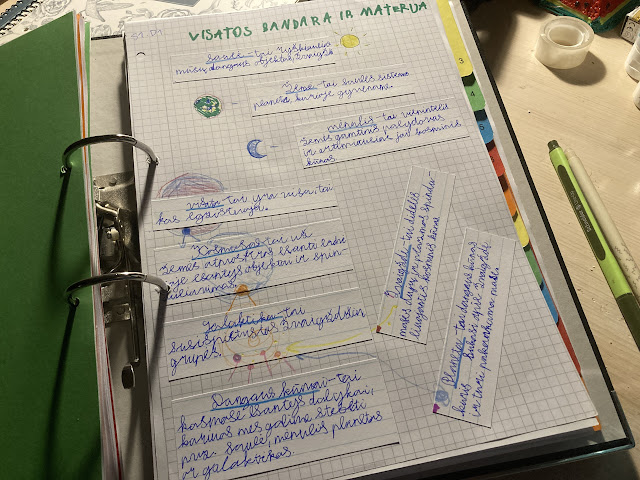 VISATOS SANDARA IR MATERIJA
Saulė - tai ryškiausias
mūsų dangaus objektas, žvaigždė.
Žemė - tai saulės sistemos
planeta, kurioje gyvename.
Mėnulis - tai vienintelis
žemės gamtinis palydovas
ir artimiausias jai kosminis
kūnas.
Visata - tai yra visa, tai
kas egzistuoja.
Kosmosas - tai už
žemės atmosferos esanti erdvė
joje esantys objektai ir spin-
duliavimas.
Galaktika - tai
susispietusios žvaigždžių
grupės.
Dangaus kūnai - tai
kosmose esantys dalykai,
kuriuos mes galime stebėti
pvz. saulė, mėnulis planetos
ir galaktikos.
Žvaigždė - tai didelis
masės dujų ir plazmos spindu-
liuojantis kosminis kūnas
Planeta - tai dangaus kūnas
kuris sukasi apie žvaigždę
ir turi pakankamai masės
3
4
5